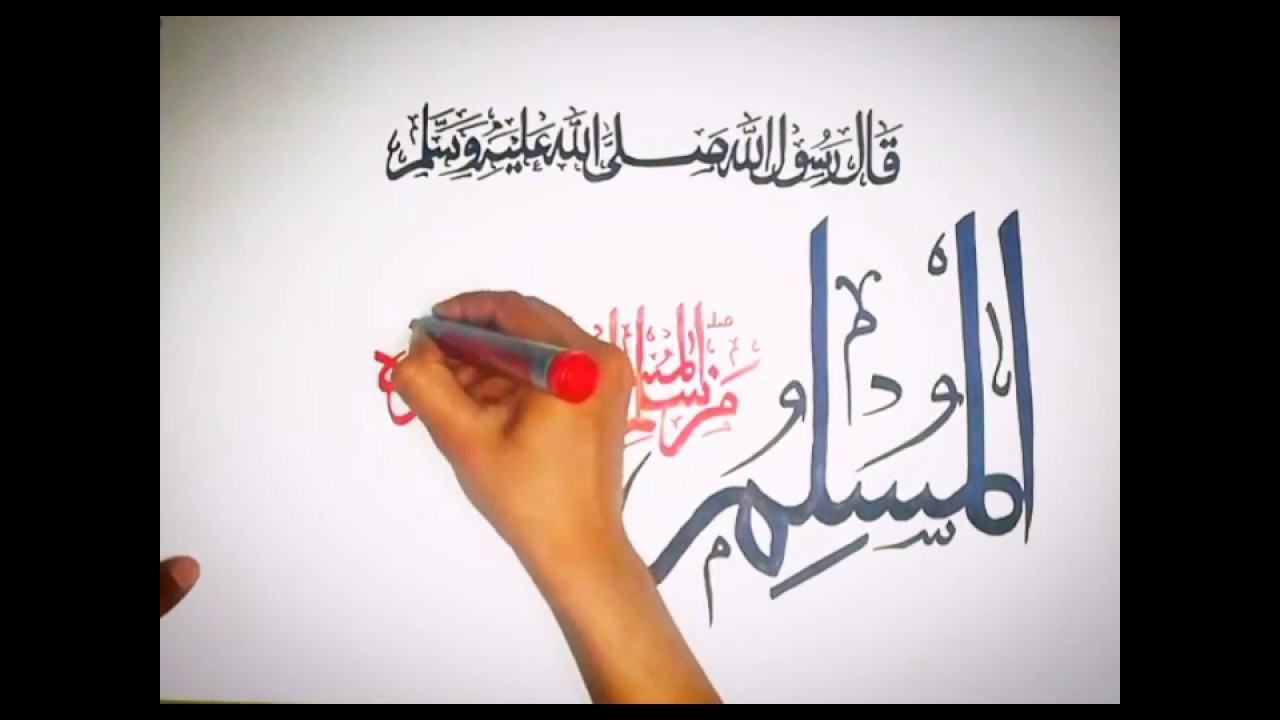 قَالَ رَسُولُ اللَّهِ صَلَّى اللَّهُ عَلَيْهِ وَسَلَّمَ
المُسْلِمُ
مَنْ سَلِمَ المُسْلِمُ